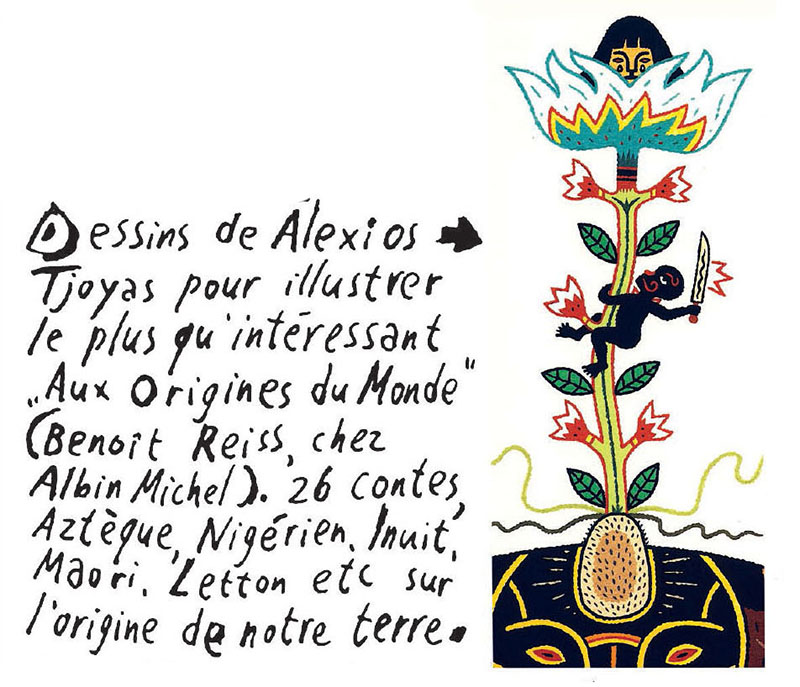 Dessins de Alexios
Tjoyas pour illustrer
le plus qu'intéressant
„Aux Origines du Monde"
(Benoît Reiss, chez
Albin Michel). 26 contes,
Aztèque, Nigérien. Inuit.
Maori. Letton etc sur
l'origine de notre terre.